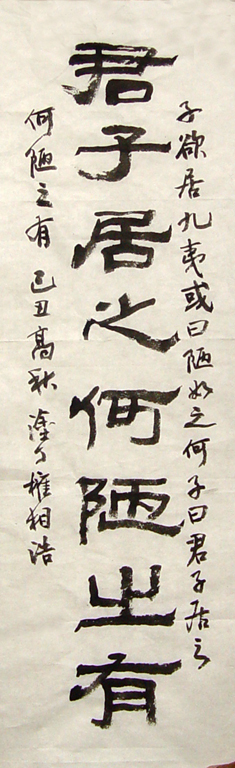 君子居之何陋之有
子欲居九夷或曰陋如之何子曰君子居之
何陋之有 己丑高秋 塗丁 權相浩